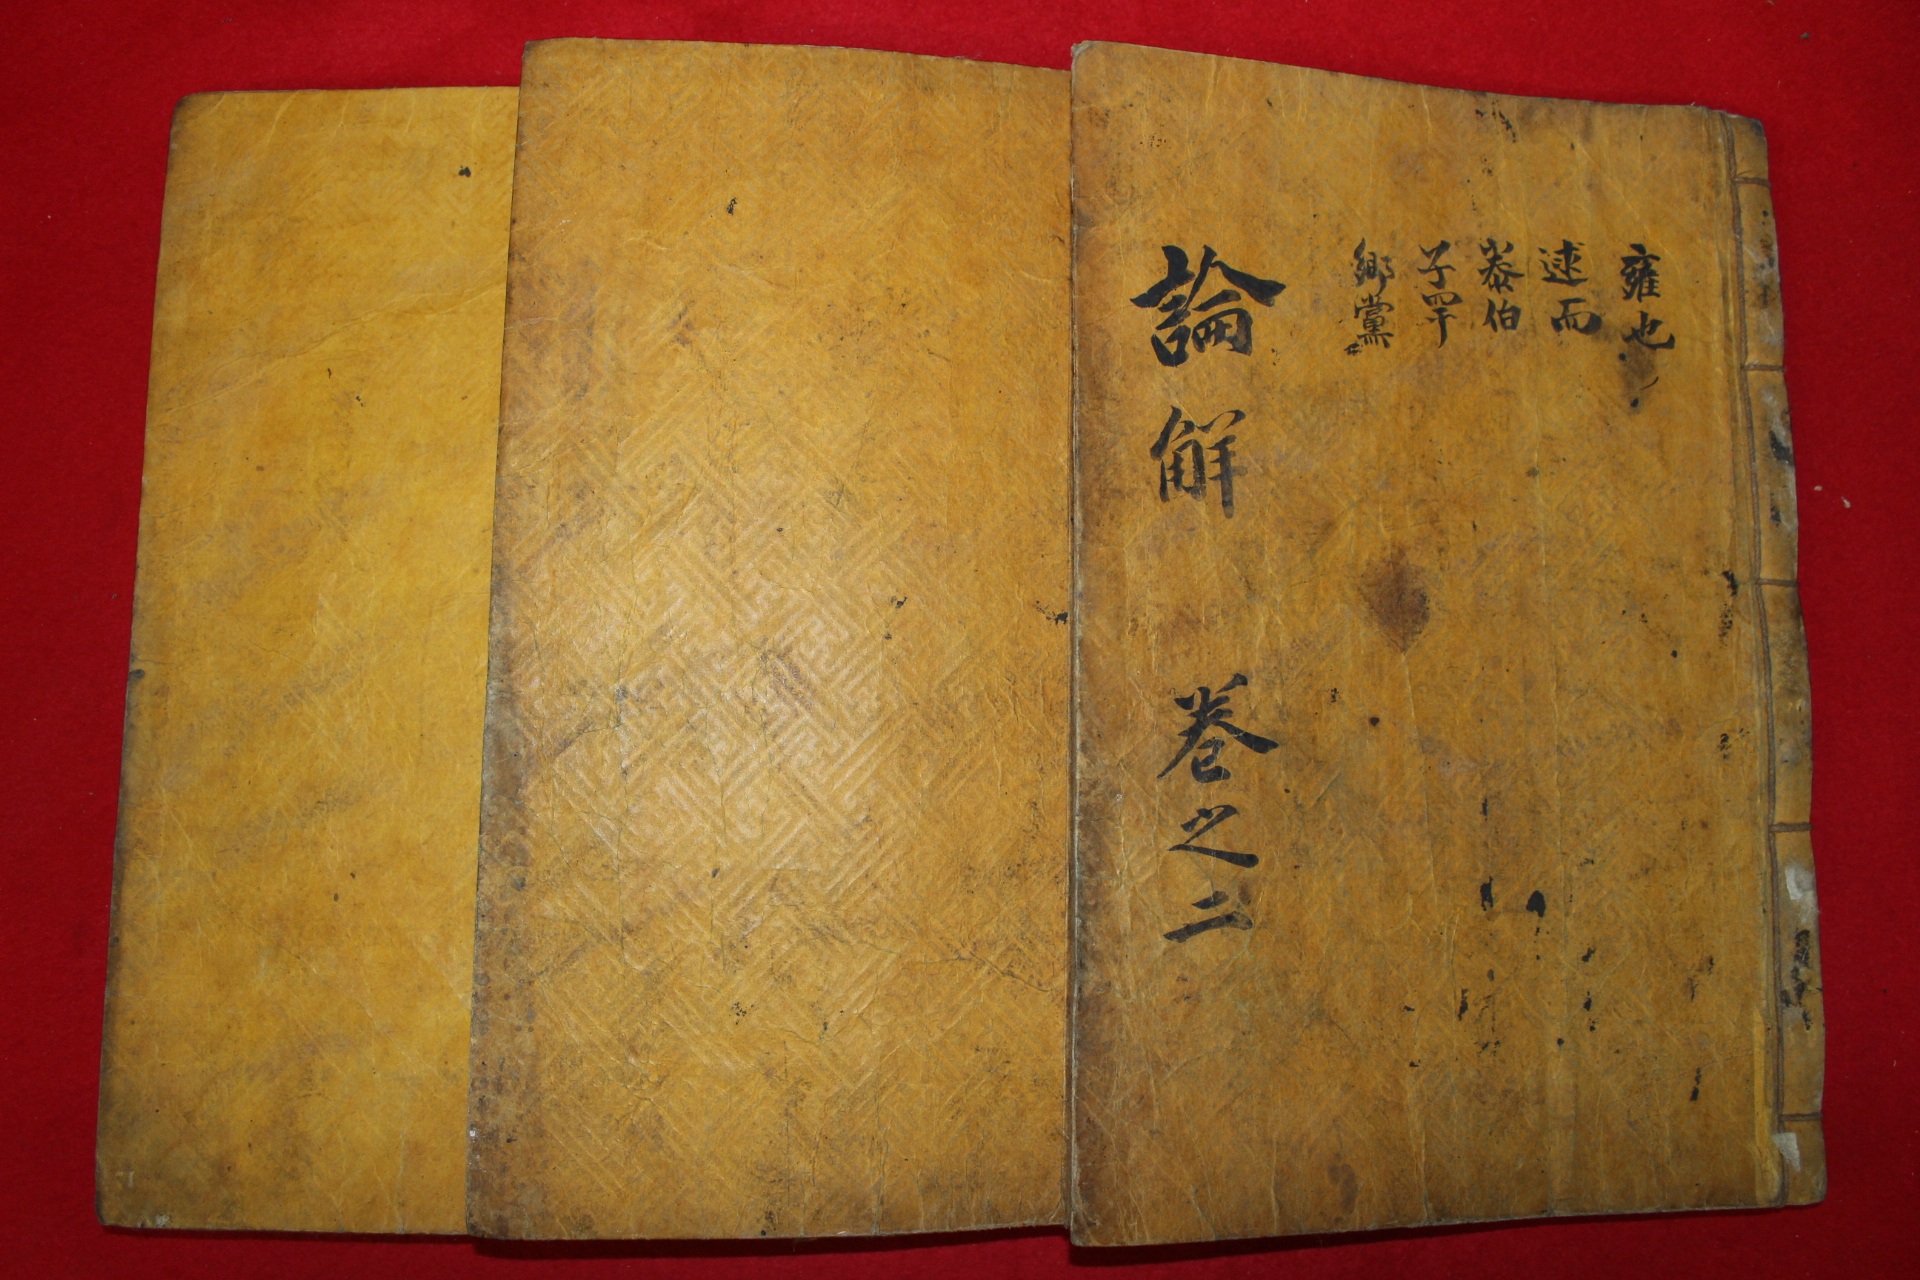 雍也
述而
泰伯
子罕
鄉黨
論解 卷之二